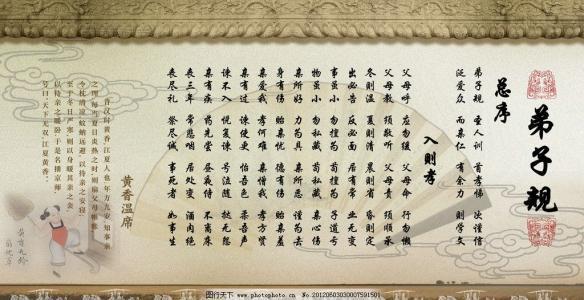 弟子规
总序
弟子规 圣人训 首孝悌 次谨信
泛爱众 而亲仁 有余力 则学文
入则孝
父母呼 应勿缓 父母命 行勿懒
父母教 须敬听 父母责 须顺承
冬则温 夏则凊 晨则省 昏则定
出必告 反必面 居有常 业无变
事虽小 勿擅为 苟擅为 子道亏
物虽小 勿私藏 苟私藏 亲心伤
亲所好 力为具 亲所恶 谨为去
身有伤 贻亲忧 德有伤 贻亲羞
亲爱我 孝何难 亲憎我 孝方贤
亲有过 谏使更 怡吾色 柔吾声
谏不入 悦复谏 号泣随 挞无怨
亲有疾 药先尝 昼夜侍 不离床
丧三年 常悲咽 居处变 酒肉绝
丧尽礼 祭尽诚 事死者 如事生
黄香温席
昔汉时黄香江夏人也年方九岁知事亲
之理每当夏日炎热之时则扇父母帷帐
令枕清凉蚊蚋远避以待亲之安寝
至于冬日严寒则以身暖其亲之衾
以待亲之暖卧于是名播京师
号曰天下无双江夏黄香
图行天下 www.photophoto.cn No.20120503030007591501